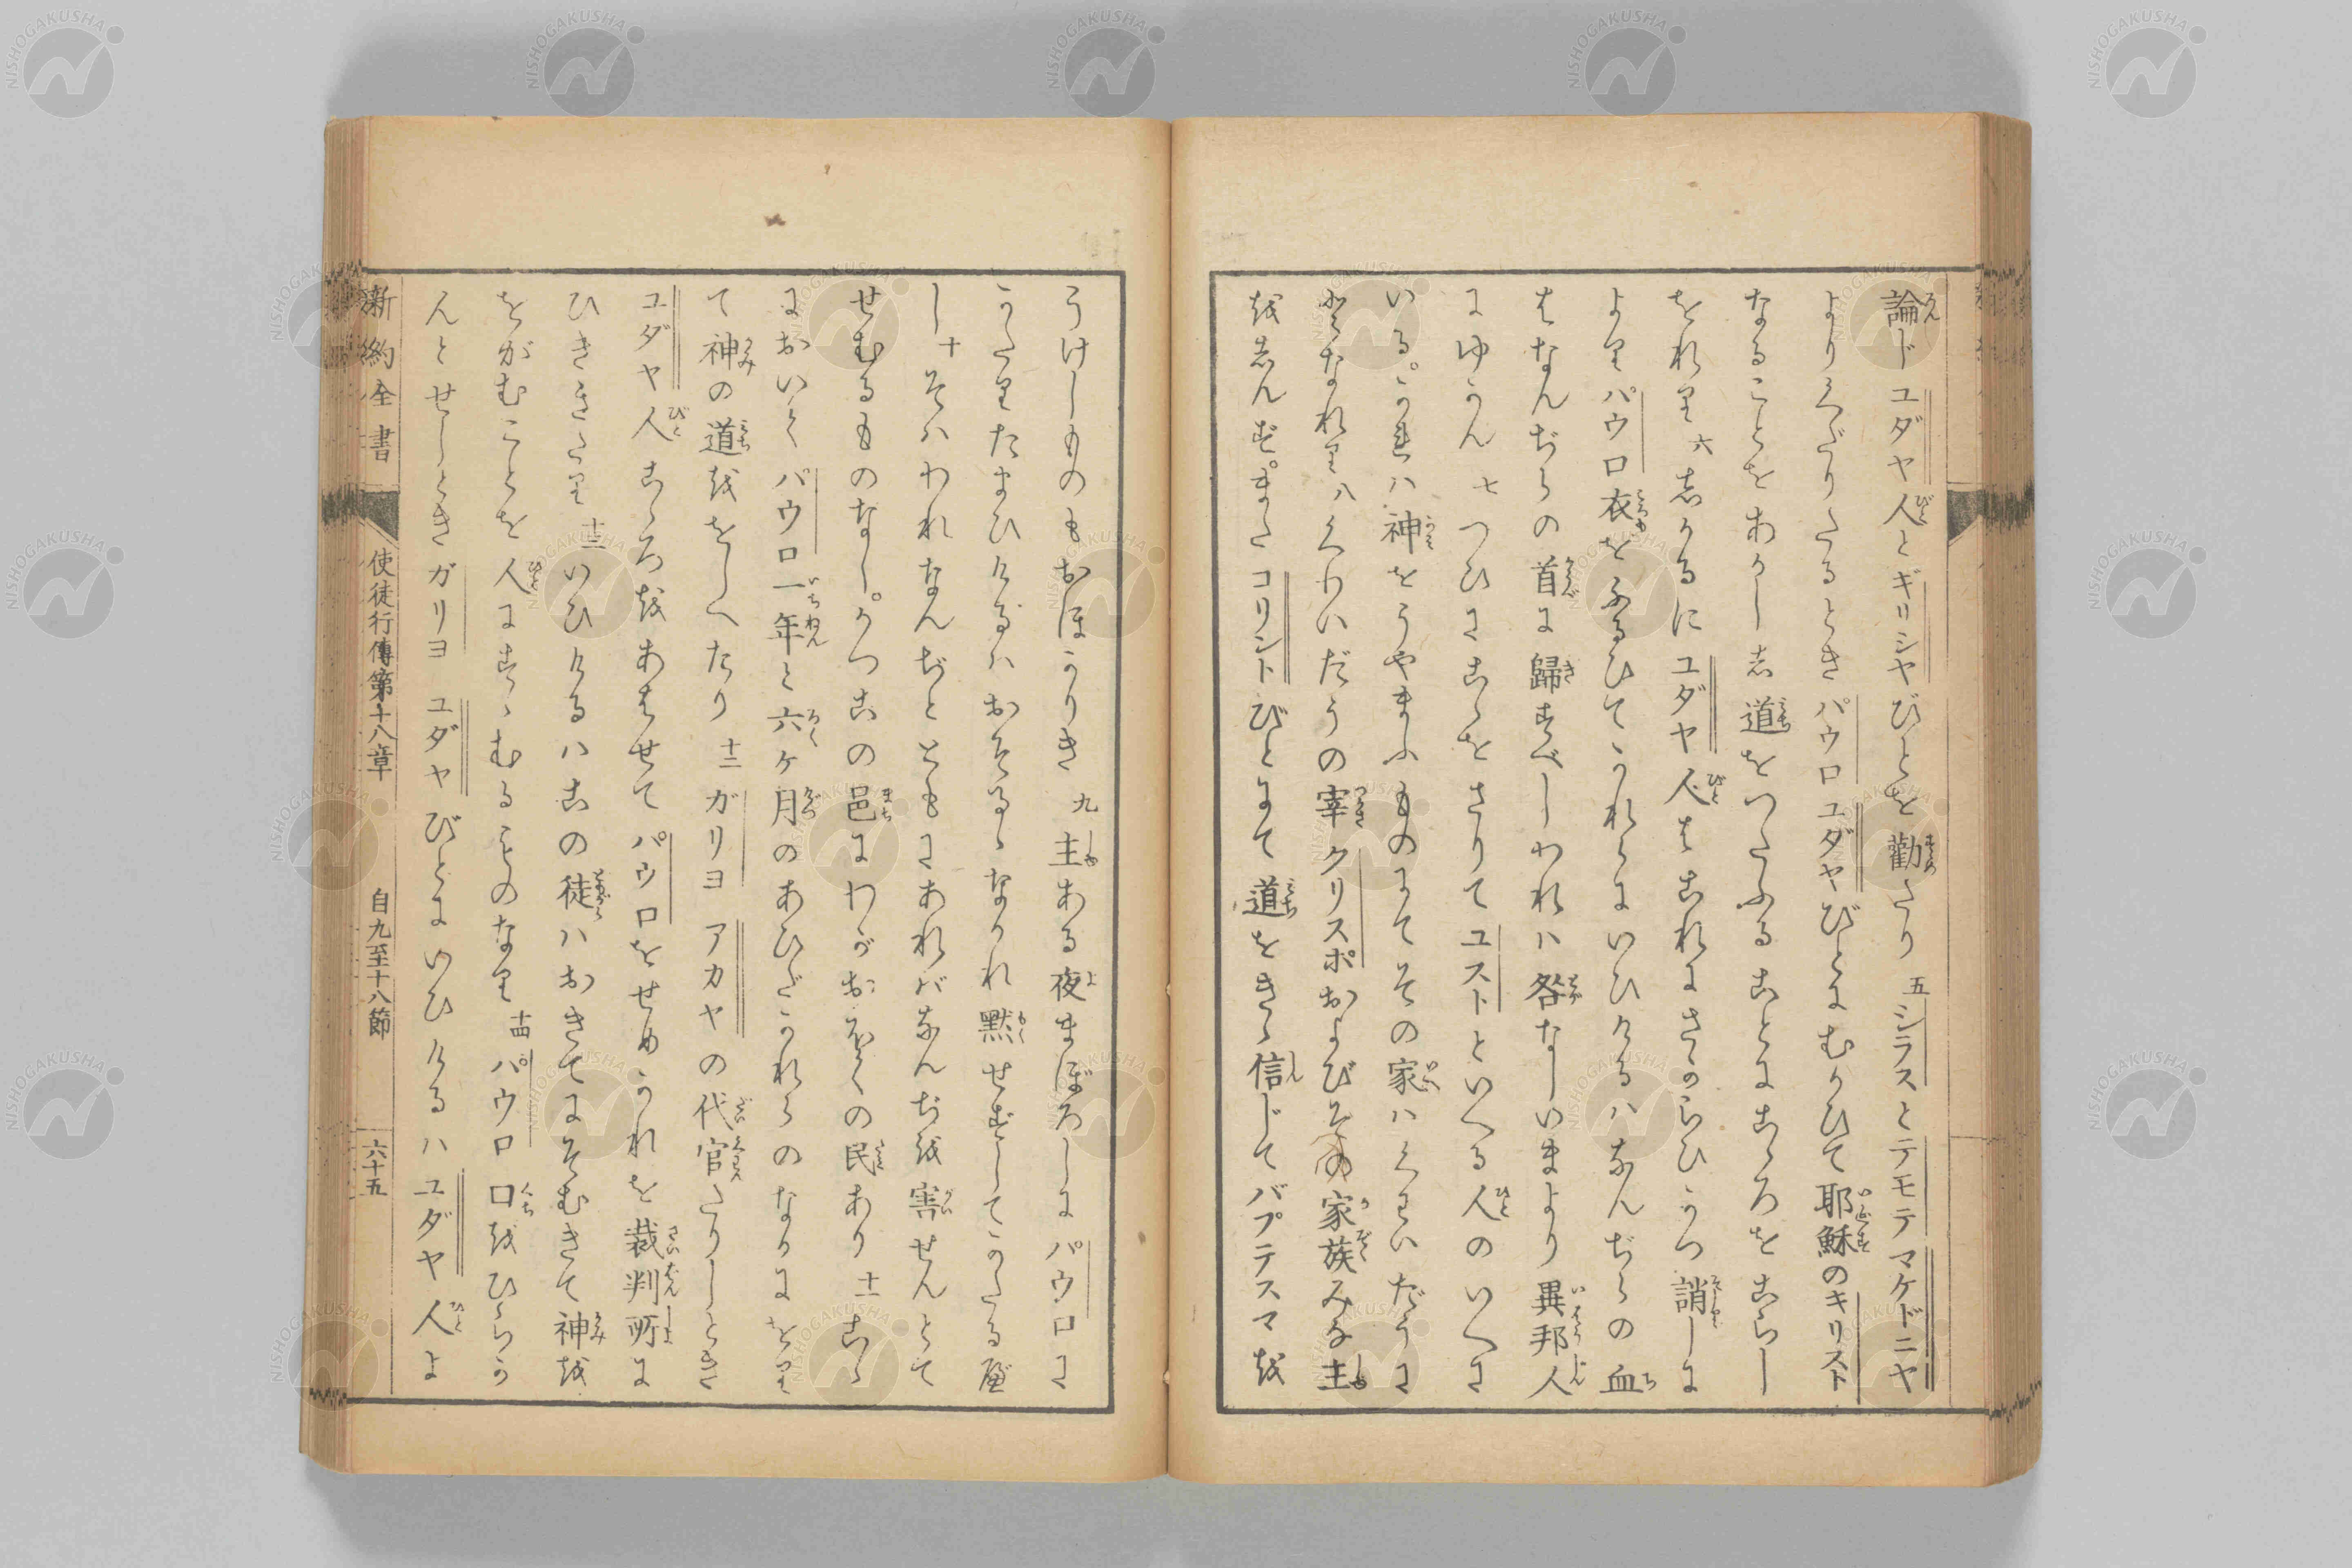 論じユダヤ人とギリシヤびとを勸たり 五 シラスとテモテマケドニヤ
よりくだりたるときパウロユダヤびとにむかひて耶穌のキリスト
なることをあかしし道をつたふることにこゝろをこらし
をれり 六 しかるにユダヤ人はこれにさからひかつ誚しに
よりパウロ衣をふるひてかれらにいひけるハなんぢらの血
はなんぢらの首に歸すべしわれハ咎なしいまより異邦人
にゆかん 七 つひにこゝをさりてユストといへる人のいへに
いる。かれハ神をうやまふものにてその家ハくわいだうに
となれり 八 くわいだうの宰クリスポおよびその家族みな主
を志んず。またコリントびとにて道をきゝ信じてバプテスマを
うけしものもおほかりき 九 主ある夜まぼろしにパウロに
かたりたまひけるハおそるゝなかれ默せずしてかたる&#x5C;べ
し 十 そハわれなんぢとともにあれバなんぢを害せんとて
せむるものなし。かつこの邑にわがおほくの民あり 十一 こゝ
においてパウロ一年と六ヶ月のあひだかれらのなかにをり
て神の道ををしへたり 十二 ガリヨアカヤの代官たりしとき
ユダヤ人こゝろをあはせてパウロをせめかれを裁判所に
ひききたり 十三 いひけるハこの徒ハおきてにそむきて神を
をがむことを人にすゝむるものなり 十四 パウロ口をひらか
んとせしときガリヨユダヤびとにいひけるハユダヤ人よ
新約全書 使徒行傳第十八章 自九至十八節 六十五
NISHOGAKUSHA